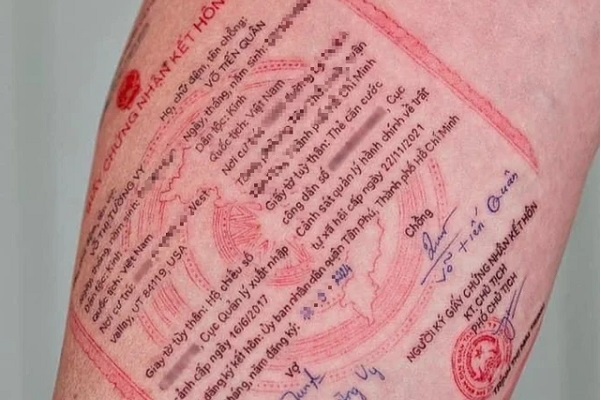 GIẤY CHỨNG NHẬN KẾT HÔN
Họ, chữ đệm, tên chồng:
VÕ TIẾN QUÂN
Ngày, tháng, năm sinh:
Dân tộc: Kinh
Quốc tịch: Việt Nam
Nơi cư
Chí Minh
Giấy tờ tùy thân: Thẻ căn cước
công dân số Cục
Cảnh sát quản lý hành chính về trật
tự xã hội cấp ngày 22/11/2021
THỊ TƯỜNG VY
tháng, năm sinh:
Dân tộc: Kinh
Quốc tịch: Việt Nam
Nơi cư trú: West
Valley, UT 84119 USA
Giấy tờ tùy thân: Hộ chiếu số
Cục Quản lý Xuất nhập
cảnh cấp ngày 16/6/2017
đăng ký kết hôn: Ủy ban nhân dân quận Tân Phú, Thành phố Hồ Chí Minh
tháng, năm đăng ký:
Vợ
Chồng
Võ Tiến Quân
NGƯỜI KÝ GIẤY CHỨNG NHẬN KẾT HÔN
KT. CHỦ TỊCH
PHÓ CHỦ TỊCH